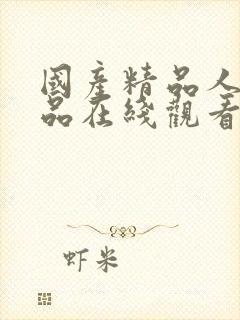 國産精品人
品在綫觀看
虾米